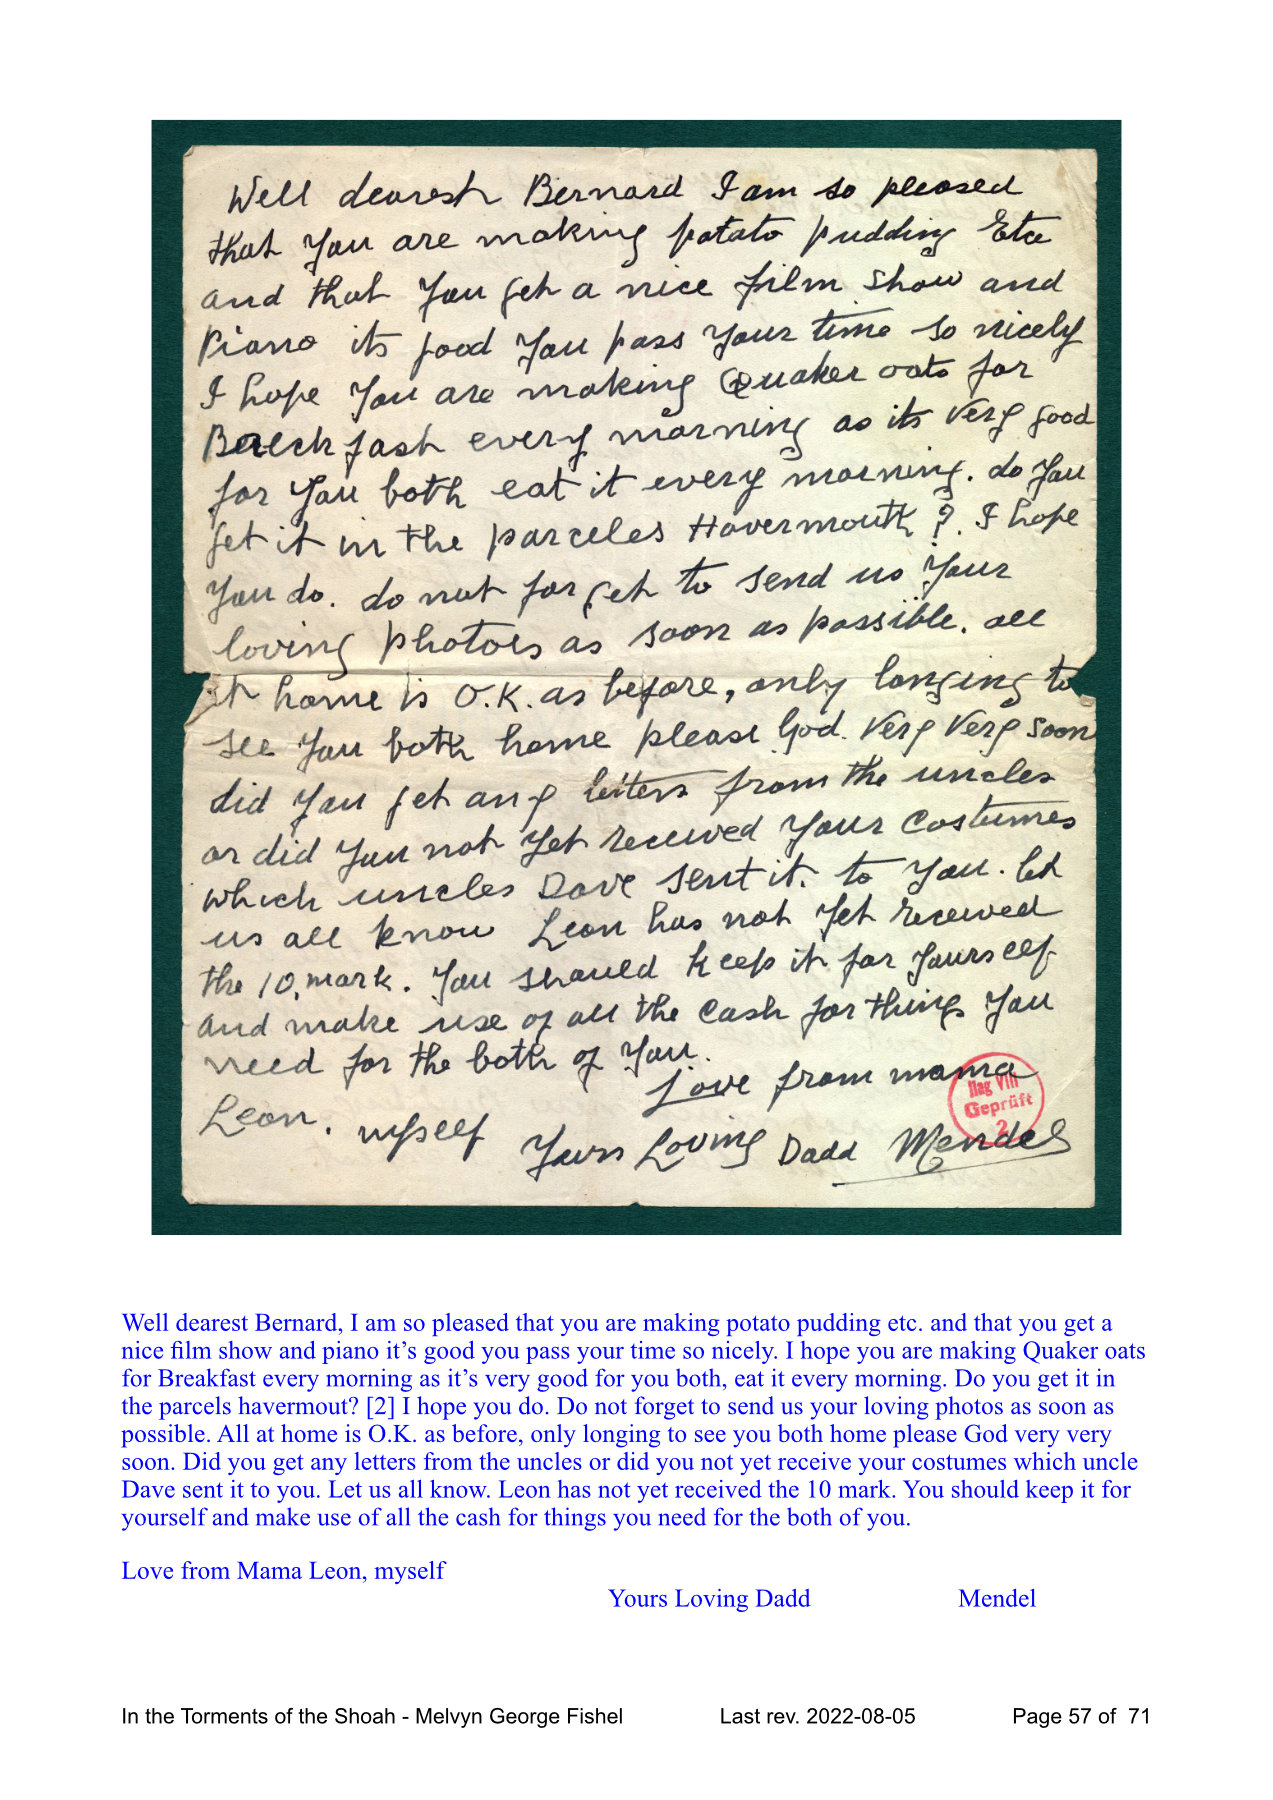 Well dearest Bernard I am so pleased
that you are making potato pudding Etc
and that you get a nice film show and
Piano its good you pass your time so nicely
I hope you are making Quaker oats for
Breckfast every morning as its very good
for you both eat it every morning. do you
get it in the parceles Havermouth ? I hope
you do. do not forget to send us your
loving photoes as soon as possible. all
at home is O.K. as before, only longing to
see you both home please God. very very soon
did you get any letters from the uncles
or did you not yet received your costumes
which uncles Dave sent it. to you. let
us all know Leon has not yet received
the 10, mark. you should keep it for yourself
and make use of all the cash for things you
need for the both of you.
Love from mama
Leon. myself Yours Loving Dadd Mendel
Ilag VIII
Geprüft
2
Well dearest Bernard, I am so pleased that you are making potato pudding etc. and that you get a
nice film show and piano it’s good you pass your time so nicely. I hope you are making Quaker oats
for Breakfast every morning as it’s very good for you both, eat it every morning. Do you get it in
the parcels havermout? [2] I hope you do. Do not forget to send us your loving photos as soon as
possible. All at home is O.K. as before, only longing to see you both home please God very very
soon. Did you get any letters from the uncles or did you not yet receive your costumes which uncle
Dave sent it to you. Let us all know. Leon has not yet received the 10 mark. You should keep it for
yourself and make use of all the cash for things you need for the both of you.
Love from Mama Leon, myself
Yours Loving Dadd Mendel
In the Torments of the Shoah - Melvyn George Fishel Last rev. 2022-08-05 Page 57 of 71